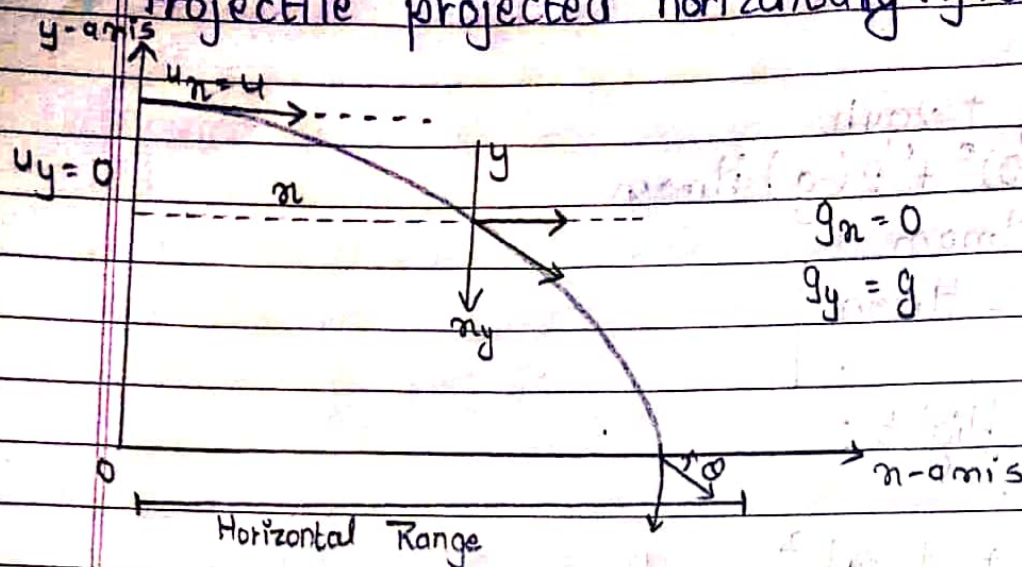 Projectile projected horizontally
y-axis
ux = u
uy = 0
y
x
gx = 0
gy = g
xy
0
θ
x-axis
Horizontal Range